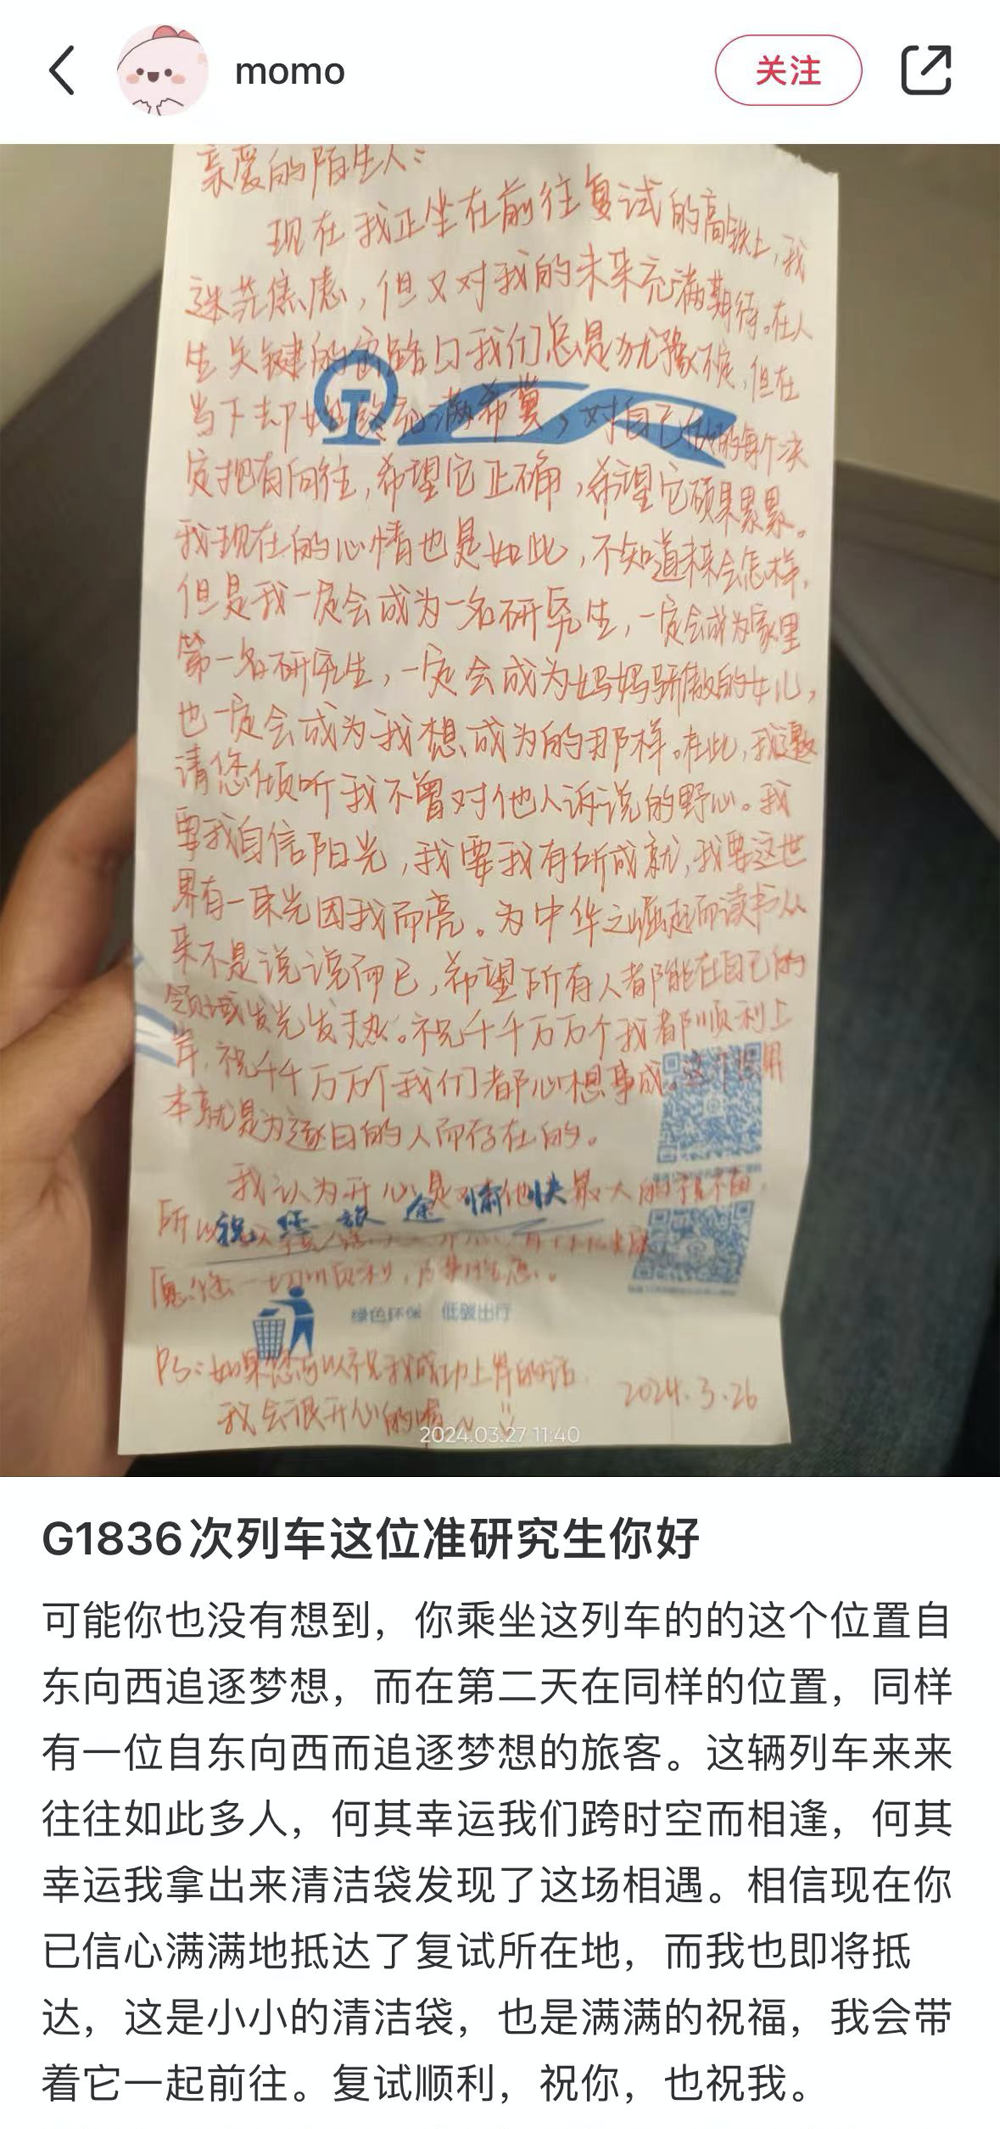 momo
关注
亲爱的陌生人：
现在我正坐在前往复试的高铁上，我
迷茫焦虑，但又对我的未来充满期待。在人
生关键的岔路口我们总是犹豫不定，但在
当下却始终充满希冀，对自己做的每个决
定抱有向往，希望它正确，希望它硕果累累。
我现在的心情也是如此，不知道未来会怎样，
但是我一定会成为一名研究生，一定会成为家里
第一名研究生，一定会成为妈妈骄傲的女儿，
也一定会成为我想成为的那样。在此，我邀
请您倾听我不曾对他人诉说的野心。我
要我自信阳光，我要我有所成就，我要这世
界有一束光因我而亮。为中华之崛起而读书从
来不是说说而已，希望所有人都能在自己的
领域发光发热。祝千千万万个我都顺利上
岸，祝千千万万个我们都心想事成。这个世界
本就是为逐日的人而存在的。
我认为开心是对其他最大的祝福
所以祝您旅途愉快
愿您一切顺利，万事胜意。
绿色环保 低碳出行
PS：如果您可以祝我成功上岸的话
我会很开心的喔~
2024.3.26
2024.03.27 11:40
G1836次列车这位准研究生你好
可能你也没有想到，你乘坐这列车的的这个位置自
东向西追逐梦想，而在第二天在同样的位置，同样
有一位自东向西而追逐梦想的旅客。这辆列车来来
往往如此多人，何其幸运我们跨时空而相逢，何其
幸运我拿出来清洁袋发现了这场相遇。相信现在你
已信心满满地抵达了复试所在地，而我也即将抵
达，这是小小的清洁袋，也是满满的祝福，我会带
着它一起前往。复试顺利，祝你，也祝我。